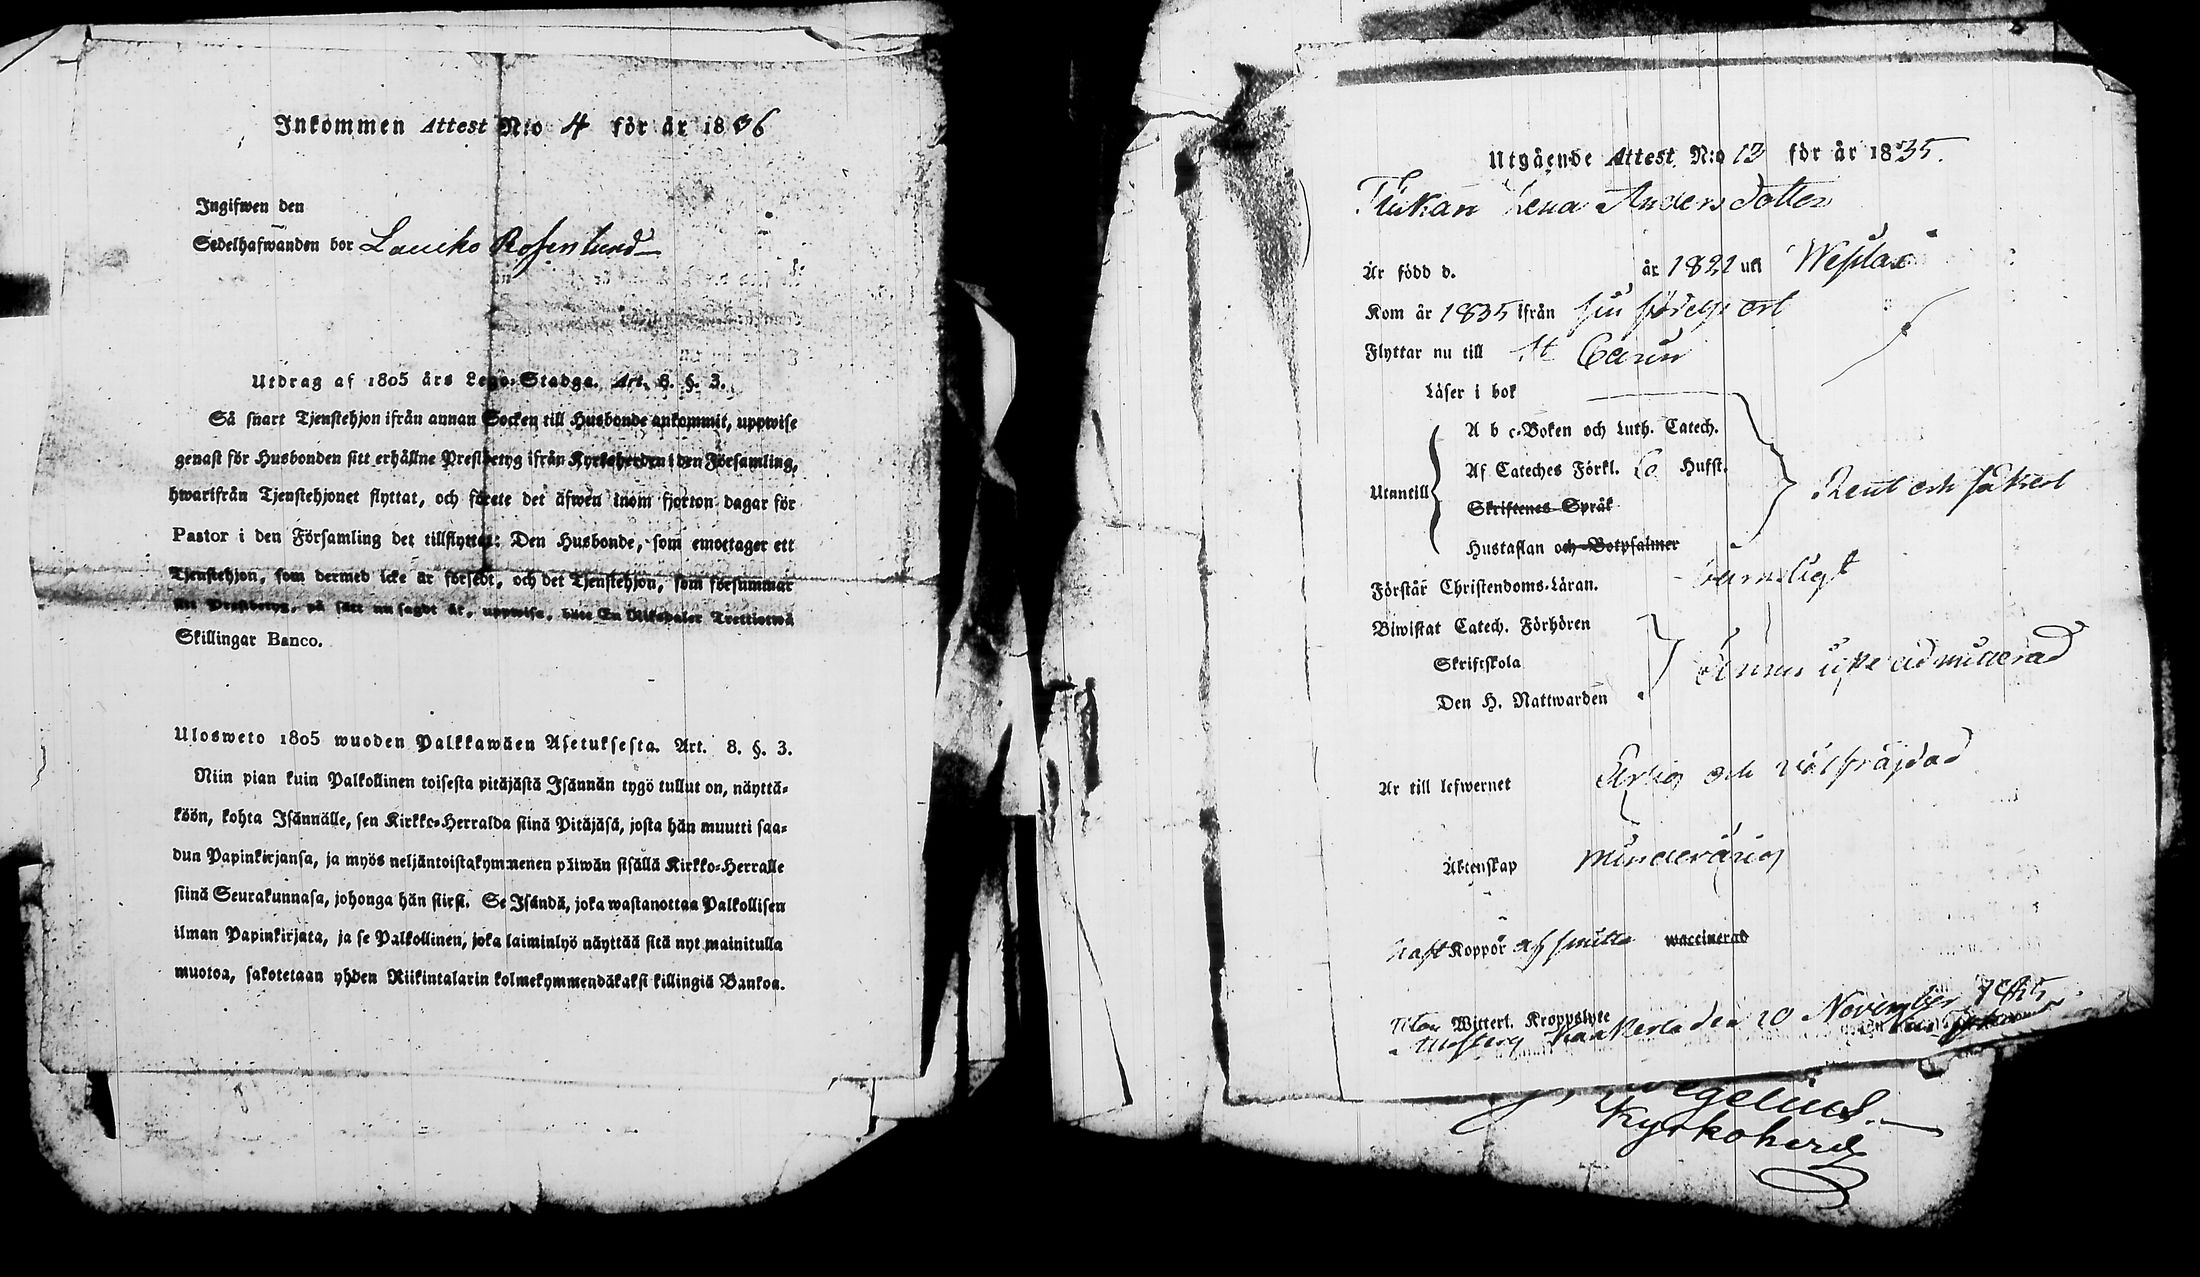 Inkommen Attest N:o 4 för år 1836
Ingifwen den
Sedelhafwanden bor Laucko Rosenlund
Utdrag af 1805 års Lego-Stadga. Art. 8. §. 3.
Så snart Tjenstehjon ifrån annan Socken till Husbonde ankommit, uppwise
genast för Husbonden sitt erhållne Prestbetyg ifrån Kyrkoherden i den Församling,
hwarifrån Tjenstehjonet flyttat, och förete det äfwen inom fjorton dagar för
Pastor i den Församling det tillflyttat: Den Husbonde, som emottager ett
Tjenstehjon, som dermed icke är försedt, och det Tjenstehjon, som försummar
sitt Prestbetyg, på sätt nu sagdt är, uppwisa, böte En Riksdaler Trettiotwå
Skillingar Banco.
Ulosweto 1805 wuoden Palkkawäen Asetuksesta. Art. 8. §. 3.
Niin pian kuin Palkollinen toisesta pitäjästä Isännän tygö tullut on, näyttä-
köön, kohta Isännälle, sen Kirkko-Herralda siinä Pitäjäsä, josta hän muutti saa-
dun Papinkirjansa, ja myös neljäntoistakymmenen päiwän sisällä Kirkko-Herralle
siinä Seurakunnasa, johonga hän siirsi. Se Isändä, joka wastanottaa Palkollisen
ilman Papinkirjata, ja se Palkollinen, joka laiminlyö näyttää sitä nyt mainitulla
muotoa, sakotetaan yhden Riikintalarin kolmekymmendäkaksi killingiä Bankoa.
Utgående Attest N:o 13 för år 1835.
Flickan Lena Andersdotter
Är född d. år 1821 uti Westlax
Kom år 1835 ifrån
Flyttar nu till St Carins
Läser i bok
A b c-Boken och Luth. Catech.
Utantill Af Cateches Förkl. 6 Hufst. Rent och säkert
Skriftenes Språk
Hustaflan och Botpsalmer
Förstår Christendoms-Läran.
Biwistat Catech. Förhören
Skriftskola Ännu icke admitterad
Den H. Nattwarden
Är till lefwernet Ärlig och välfräjdad
Äktenskap minderårig
haft Koppor af smitta waccinerad
Utan Witterl. Kroppslyte
den 20 November 1835
Wegelius.
Kyrkoherde